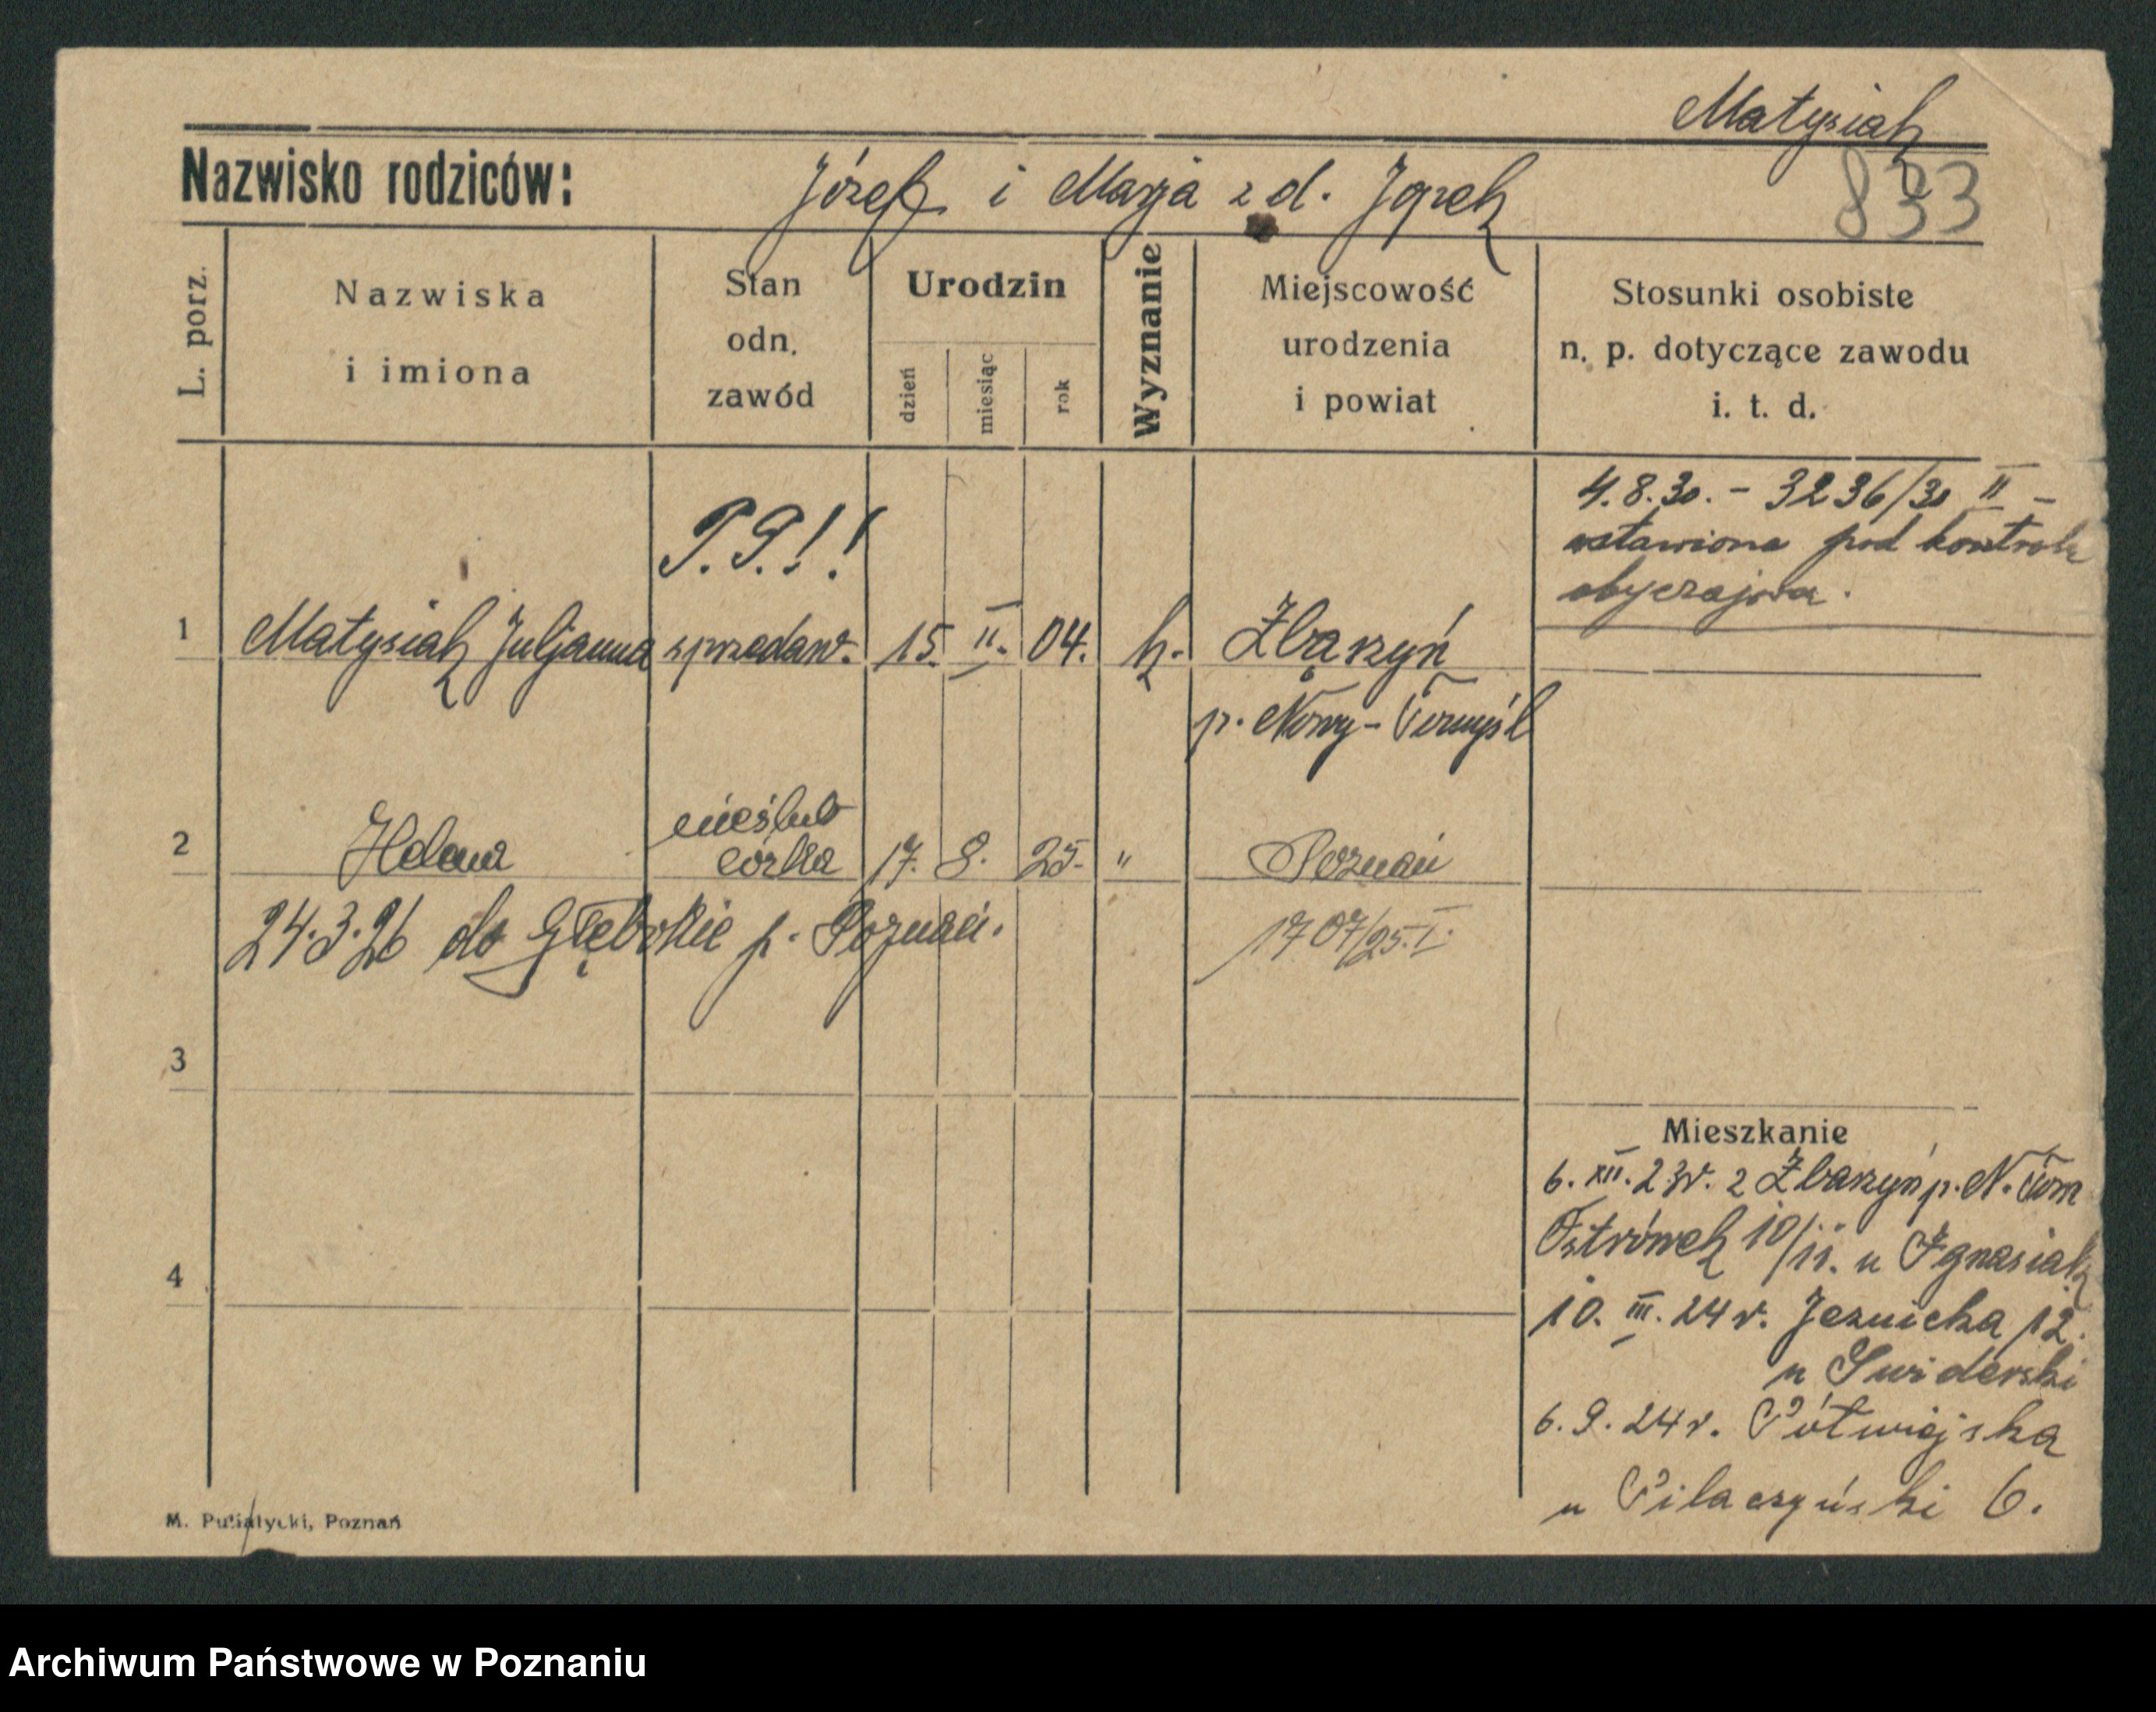 Matysiak
833
Nazwisko rodziców: Józef i Marja z d. Jopek
L. porz.
Nazwiska i imiona
Stan odn. zawód
Urodzin
dzień
miesiąc
rok
Wyznanie
Miejscowość urodzenia i powiat
Stosunki osobiste n. p. dotyczące zawodu i. t. d.
4.8.30. - 3236/30 II -
wstawiona pod kontrolę
obyczajową.
P.P.!!
1 Matysiak Juljanna sprzedaw. 15. II. 04. k. Zbąszyń
p. Nowy-Tomyśl
nieślub
2 Helena córka 17. 8. 25. " Poznań
24.3.26 do Głębokie p. Poznań.
1707/25.I.
3
Mieszkanie
6. XII. 23r. z Zbąszyń p. N. Tom
Ostrówek 10/11. u Ignasiak
4
10. III. 24 r. Jezuicka 12.
u Swiderski
6.9.24 r. Półwiejska
u Pilaczyński 6.
M. Putiatycki, Poznań
Archiwum Państwowe w Poznaniu